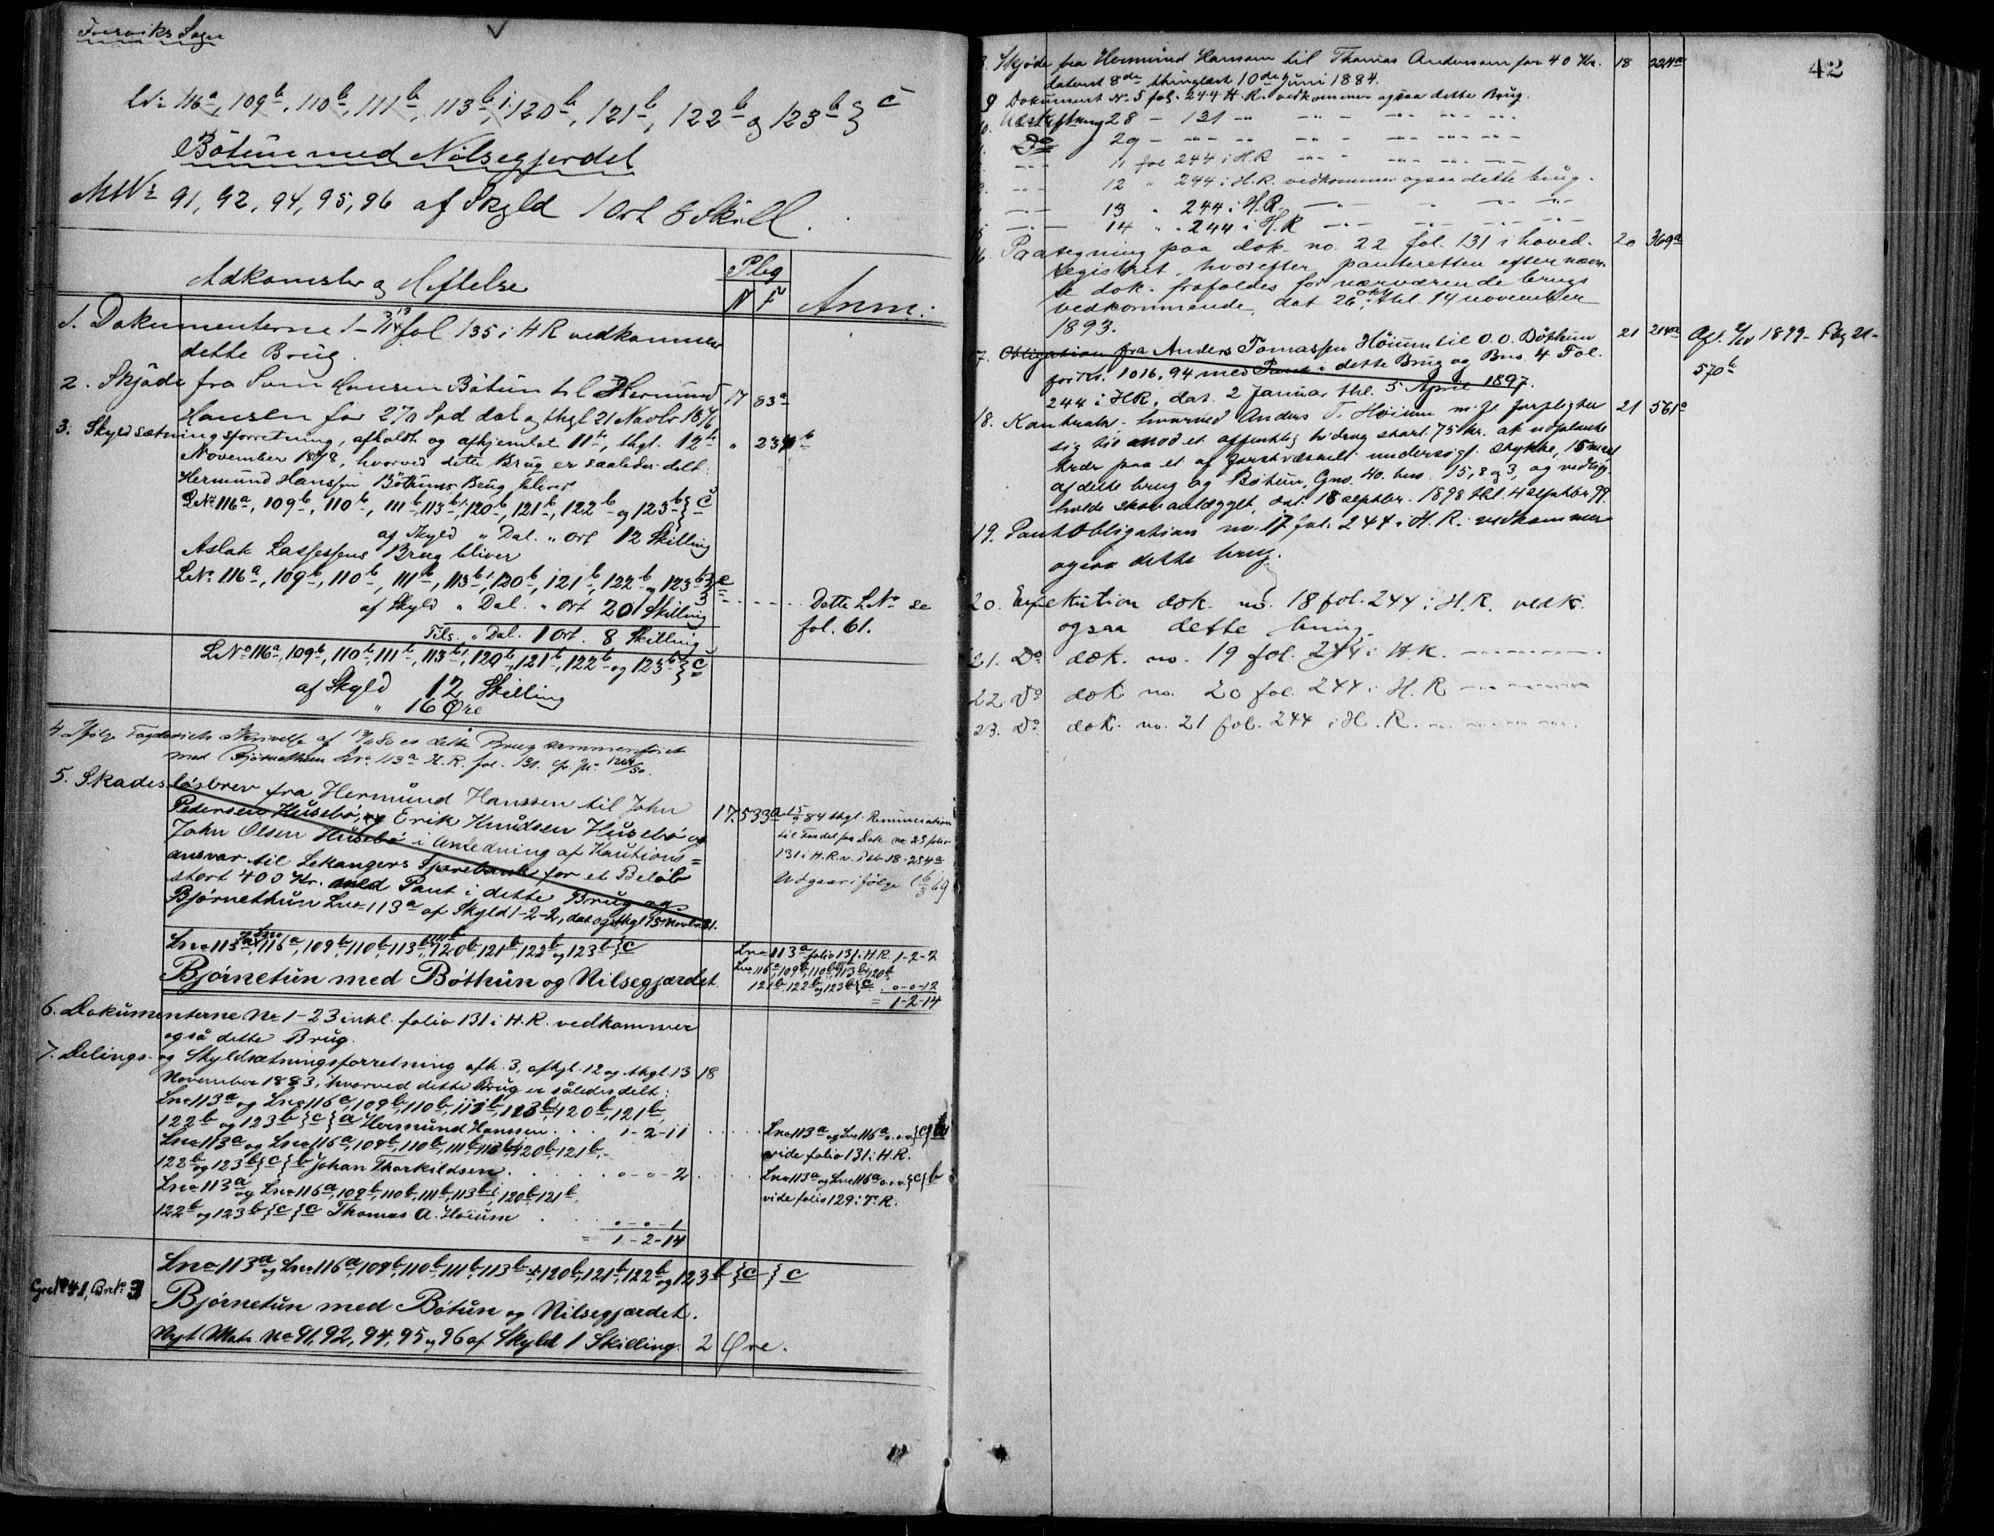 Sogn
LNo 116a, 109b, 110b, 111b, 113b i, 120b, 121b, 122b og 123b } c
Bötun med Nilsegjerdet
MNo 91, 92, 94, 95, 96 af Skyld 1 Ort 8 Skill.
Adkomster og Heftelse
Pbog
N F
Anm:
1. Dokumenterne 1- fol 135 i HR vedkommer
dette Brug.
2. Skjöde fra Hansen Bötun til Hermund 17 83a
Hansen for 270 Spd dat og thgl 21 Novbr 1876
3. Skyldsætningsforretning, afholdt og afhjemlet 11te, thgl. 12te " 234b
November 1878, hvorved dette Brug er saaledes delt:
Hermund Hanssen Böthuns Brug bliver
LNo 116a, 109b, 110b, 111b, 113b i, 120b, 121b, 122b og 123b } c
af Skyld " Dal. " Ort 12 Skilling
Aslak Lassessens Brug bliver
LNo 116a, 109b, 110b, 111b, 113b i, 120b, 121b, 122b og 123b } e
af Skyld " Dal. " Ort 20 Skilling
Dette LNo se
fol. 61.
Tils. " Dal. 1 Ort. 8 Skilling
LNo 116a, 109b, 110b, 111b, 113b i, 120b, 121b, 122b og 123b } c
af Skyld 12 Skilling
" 16 Øre
4. Ifølge Fogderiets Skrivelse af er dette Brug sammenföiet
med Björnethun LNo 113a H.R. fol. 131.
5. Skadeslösbrev fra Hermund Hanssen til John
Pedersen Husebö, og Erik Knudsen Husebö og 17. 533a
John Olsen Husebö i Anledning af Kautions=
ansvar til Lekangers Sparebank for et Belöb
stort 400 Kr. med Pant i dette Brug og
Bjørnethun Lno 113a af Skyld 1-2-2, dat og thgl 15 Novbr 81.
84 thgl. Renunciation
til Fordel for Dok. no 23 folio
131 i H.R. 18-254a
Udgaar ifølge
Lno 113a, 116a, 109b, 110b, 113b i, 120b, 121b, 122b og 123b } c
Bjørnetun med Bøthun og Nilsegjærdet
Lno 113a folio 131 i H.R. 1-2-2
Lno 116a, 109b, 110b, 113b i, 120b,
121b, 122b og 123b } c. 0-0-12
= 1-2-14
6. Dokumenterne No 1-23 inkl. folio 131 i H.R. vedkommer
også dette Brug.
7. Delings- og Skyldsætningsforretning afh. 3, afhjl. 12 og thgl. 13 18
November 1883, hvorved dette Brug er således delt:
Lno 113a og Lno 116a, 109b, 110b, 111b, 113b i, 120b, 121b,
122b og 123b } c } a Hermund Hanssen . . . 1-2-11
Lno 113a og Lno 116a o.s.v. } c } a
vide folio 131 i H.R.
Lno 113a og Lno 116a, 109b, 110b, 111b, 113b i, 120b, 121b,
122b og 123b } c } b Johan Thorkildsen . . . 0-0-2
Lno 113a og Lno 116a o.s.v. } c } b
vide folio 129 i T.R.
Lno 113a og Lno 116a, 109b, 110b, 111b, 113b i, 120b, 121b,
122b og 123b } c } c Thomas A. Høium . . . 0-0-1
= 1-2-14
Lno 113a og Lno 116a, 109b, 110b, 111b, 113b i, 120b, 121b, 122b og 123b } c } c
Gno 41, Bno 3
Bjørnetun med Bötun og Nilsegjærdet.
Nyt Matr. No 91, 92, 94, 95 og 96 af Skyld 1 Skilling. 2 Øre.
42
8. Skjøde fra Hermund Hanssen til Thomas Anderssen for 40 Kr. 18 224a
dateret 8de thinglæst 10de Juni 1884.
9 Dokument No 5 fol. 244 H.R. vedkommer ogsaa dette Brug.
10. Udskiftning 28 - 131 -"- -"- -"- -"-
Do 29 - -"- -"- -"- -"-
11 fol 244 i H.R -"- -"- -"-
12 " 244 i H.R. vedkommer ogsaa dette brug.
13 " 244 i H.R. -"- -"-
14 " 244 i H.R -"- -"-
16. Paategning paa dok. no. 22 fol. 131 i hoved- 20 369a
registret, hvorefter panteretten efter nævn-
te dok. frafaldes for nærværende brugs
vedkommende, dat 26 okt. thl. 14 november
1893.
17. Obligation fra Anders Tomassen Höium til O.O. Böthun 21 214a
for Kr. 1016,94 med Pant i dette Brug og Bno. 4 Fol.
244 i HR, dat. 2 Januar thl. 5 April 1897.
1899 - Pbg 21-
570b
18. Kontrakt - hvorved Anders T. Höium m. fl. forpligter 21 561a
sig til mod et offentlig bidrag stort 75 kr. at udplante
træer paa et af forstvæsenet undersøgt stykke,
af dette brug og Bötun, Gno. 40. bno. 15, 8 og 3, og vedlige-
holde skovanlægget, dat. 18 septbr. 1898 thl. 4 septbr 99.
19. Pantobligation no. 17 fol. 244 i H.R. vedkommer
ogsaa dette brug.
20. Exekution dok. no. 18 fol. 244 i H.R. vedk.
ogsaa dette brug.
21. Do dok. no. 19 fol. 244 i H.R. -"-
22. Do dok no. 20 fol. 244 i H.R -"-
23. Do dok. no. 21 fol. 244 i H.R. -"-